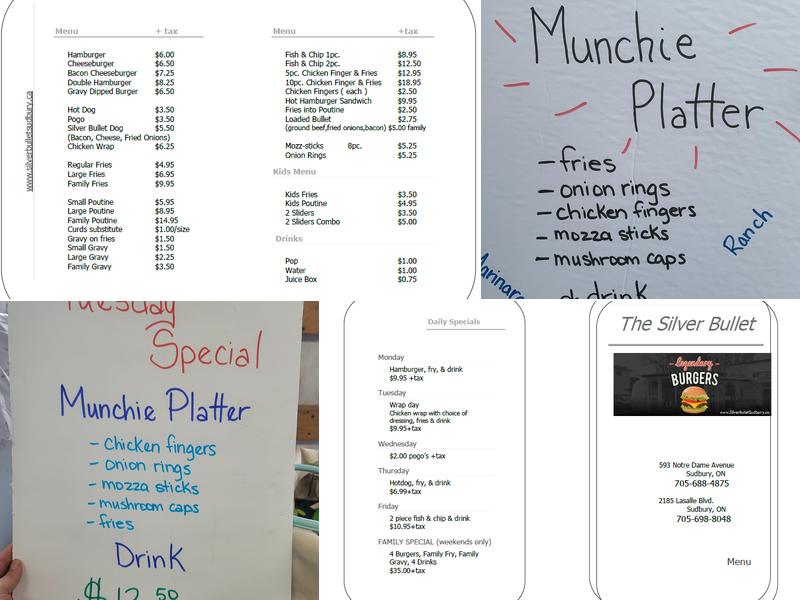 Menu + tax
Hamburger $6.00
Cheeseburger $6.50
Bacon Cheeseburger $7.25
Double Hamburger $8.25
Gravy Dipped Burger $6.50
Hot Dog $3.50
Pogo $3.50
Silver Bullet Dog $5.50
(Bacon, Cheese, Fried Onions)
Chicken Wrap $6.25
Regular Fries $4.95
Large Fries $6.95
Family Fries $9.95
Small Poutine $5.95
Large Poutine $8.95
Family Poutine $14.95
Curds substitute $1.00/size
Gravy on fries $1.50
Small Gravy $1.50
Large Gravy $2.25
Family Gravy $3.50
www.silverbulletsudbury.ca
Menu +tax
Fish & Chip 1pc. $8.95
Fish & Chip 2pc. $12.50
5pc. Chicken Finger & Fries $12.95
10pc. Chicken Finger & Fries $18.95
Chicken Fingers ( each ) $2.50
Hot Hamburger Sandwich $9.95
Fries into Poutine $2.50
Loaded Bullet $2.75
(ground beef,fried onions,bacon) $5.00 family
Mozz-sticks 8pc. $5.25
Onion Rings $5.25
Kids Menu
Kids Fries $3.50
Kids Poutine $4.95
2 Sliders $3.50
2 Sliders Combo $5.00
Drinks
Pop $1.00
Water $1.00
Juice Box $0.75
Munchie
Platter
- fries
- onion rings
- chicken fingers
- mozza sticks
- mushroom caps
Ranch
drink
Tuesday
Special
Munchie Platter
- Chicken fingers
- onion rings
- mozza sticks
- mushroom caps
- fries
Drink
$12.50
Daily Specials
Monday
Hamburger, fry, & drink
$9.95 +tax
Tuesday
Wrap day
Chicken wrap with choice of
dressing, fries & drink
$9.95+tax
Wednesday
$2.00 pogo's +tax
Thursday
Hotdog, fry, & drink
$6.99+tax
Friday
2 piece fish & chip & drink
$10.95+tax
FAMILY SPECIAL (weekends only)
4 Burgers, Family Fry, Family
Gravy, 4 Drinks
$35.00+tax
The Silver Bullet
- Legendary -
BURGERS
www.Silverbulletsudbury.ca
593 Notre Dame Avenue
Sudbury, ON
705-688-4875
2185 Lasalle Blvd.
Sudbury, ON
705-698-8048
Menu